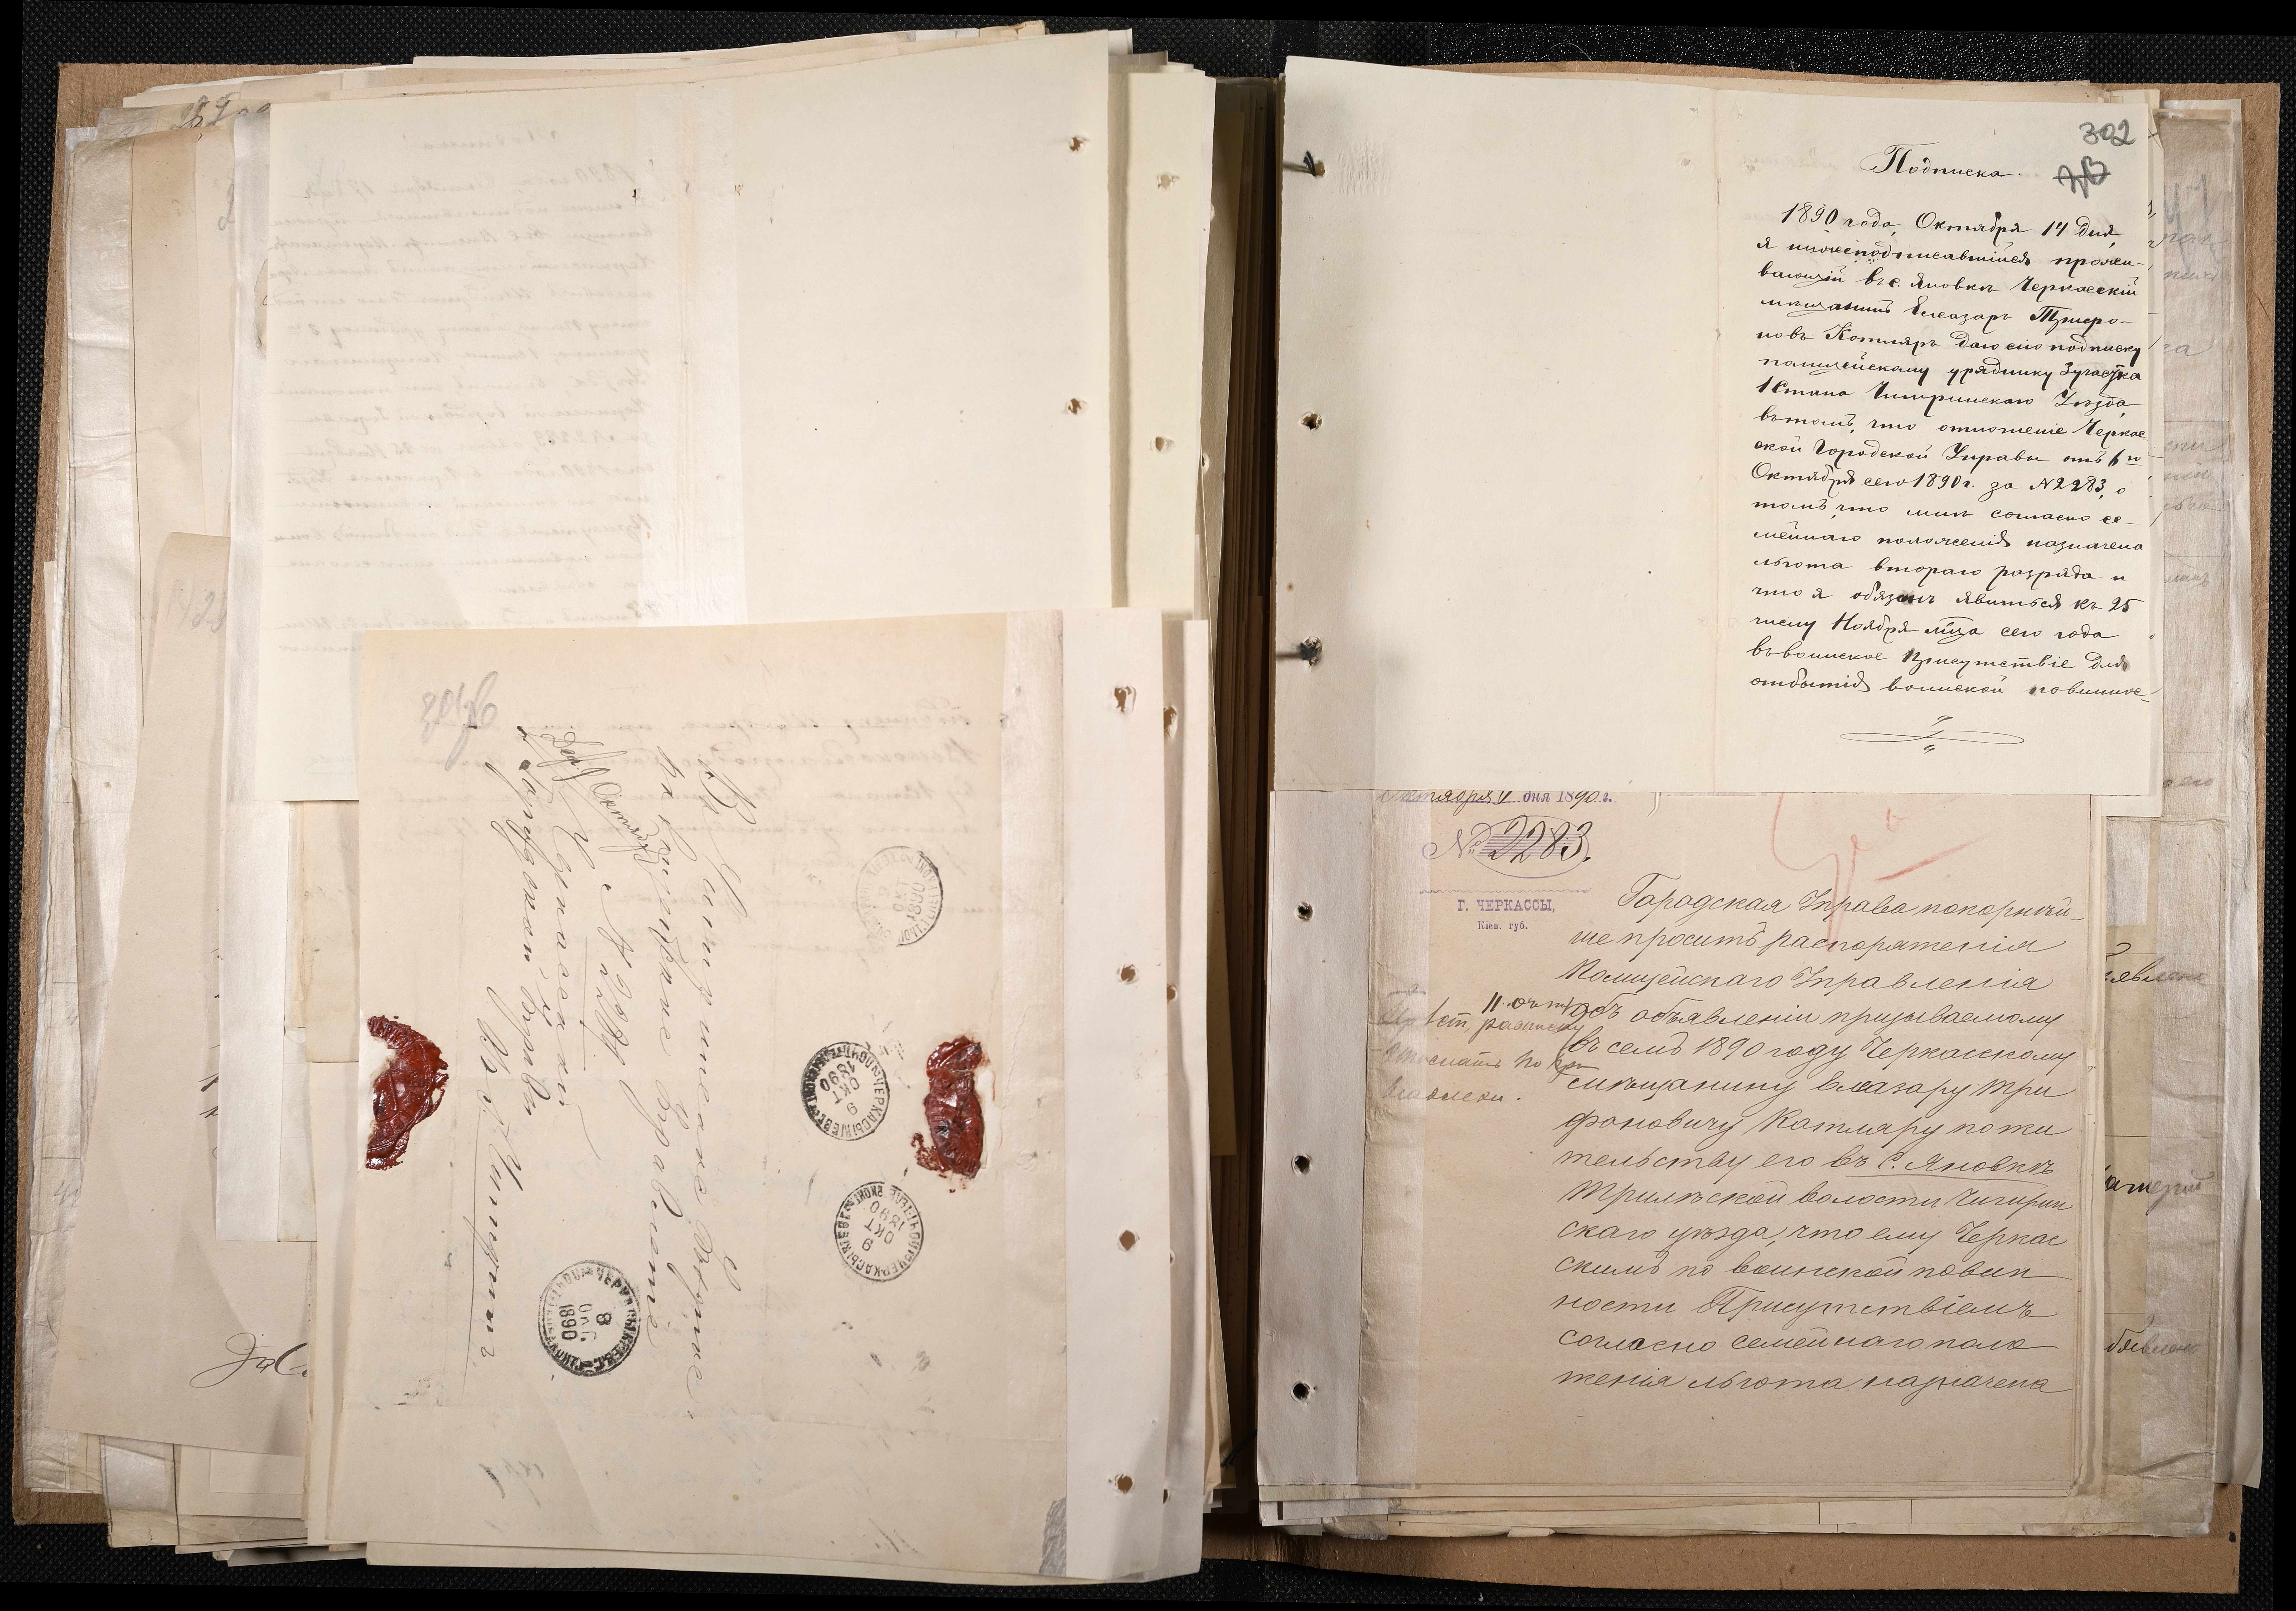 302
Подписка.
1890 года, Октября 17 дня,
я нижеподписавшійся прожи-
вающій въ с. Яновкѣ Черкасскій
мѣщанинъ Елеазаръ Трифо-
новъ Котляръ даю сію подписку
полицейскому уряднику 3 участка
1 Стана Чигиринскаго Уѣзда,
въ томъ, что отношеніе Черкас-
ской Городской Управы отъ 6го
Октября сего 1890 г. за №2283, о
томъ, что мнѣ согласно се-
мейнаго положенія назначена
льгота втораго разряда и
что я обязанъ явиться къ 25
числу Ноября мѣсца сего года
въ воинское Присутствіе для
отбытія воинской повиннос-
Октября дня 1890 г.
№ 2283.
Г. ЧЕРКАССЫ,
Кіев. губ.
Городская Управа покорнѣй-
ше проситъ распоряженія
Полицейскаго Управленія
объ объявленіи призываемому
въ семъ 1890 году Черкасскому
мѣщанину Елеазару Три
фоновичу Котляру по жи
тельству его въ с. Яновкѣ
Трилѣской волости Чигирин
скаго уѣзда, что ему Черкас
скимъ по воинской повин
ности Присутствіемъ
согласно семейнаго поло
женія льгота назначена
Въ Чигиринское Уѣздное
Полицейское Управленіе
с. № 2283
Черкасской
Городской Управы
Въ Чигиринъ
8
1890
9
ОКТ
1890
9
ОКТ
1890
9
ОКТ
1890